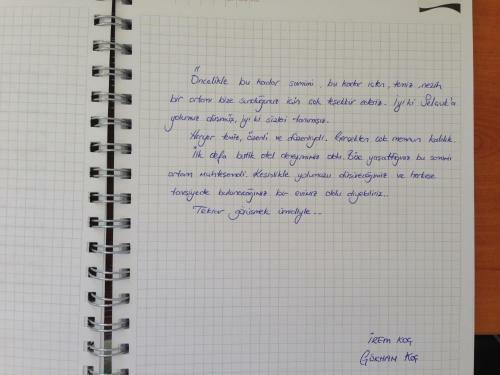 "
Öncelikle bu kadar samimi, bu kadar içten, temiz, nezih
bir ortamı bize sunduğunuz için çok teşekkür ederiz. İyi ki Selçuk'a
yolumuz düşmüş, iyi ki sizleri tanımışız.
Heryer temiz, özenli ve düzenliydi. Gerçekten çok memnun kaldık.
İlk defa butik otel deneyimimiz oldu. Bize yaşattığınız bu samimi
ortam muhteşemdi. Kesinlikle yolumuzu düşüreceğimiz ve herkese
tavsiyede bulunacağımız bir evimiz oldu diyebiliriz..
Tekrar görüşmek ümidiyle...
İREM KOÇ
GÖKHAN KOÇ